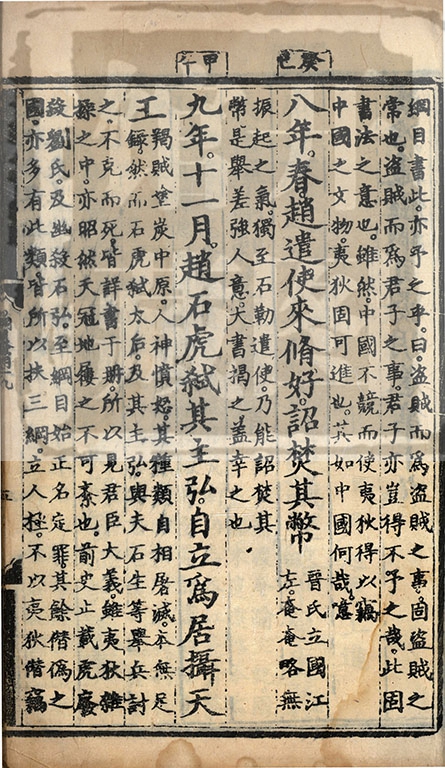 癸巳
甲午
綱目書此亦予之乎。曰。盗賊而爲盗賊之事。固盗賊之
常也。盗賊而爲君子之事。君子亦豈得不予之哉。此固
書法之意也。雖然。中國不競而使夷狄得以竊
中國之文物。夷狄固可進也。其如中國何哉。噫
八年。春。趙遣使來脩好。詔焚其幣
晉氏立國江
左。奄奄略無
振起之氣。獨至石勒遣使。乃能詔焚其
幣。是舉差強人意。大書揭之。盖幸之也
九年。十一月。趙石虎弑其主弘。自立爲居攝天
王
羯賊塗炭中原。人神憤怒。其種類自相屠滅。本無足
録。然而石虎弑太后。及其主弘。與夫石生等舉兵討
之。不克而死。皆詳書于册。所以見君臣大義。雖夷狄雜
揉之中。亦昭然天冠地履之不可紊也。前史止載虎廢
殺劉氏。及幽殺石弘。至綱目始正名定罪。其餘僭偽之
國。亦多有此類。皆所以扶三綱。立人極。不以夷狄僭竊